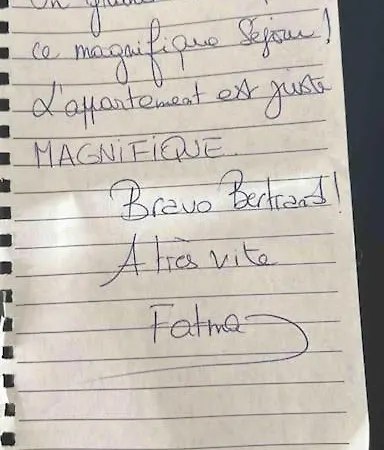 ce magnifique Séjour!
L'appartement est juste
MAGNiFiQUE
Bravo Bertrand!
A très vite
Fatma